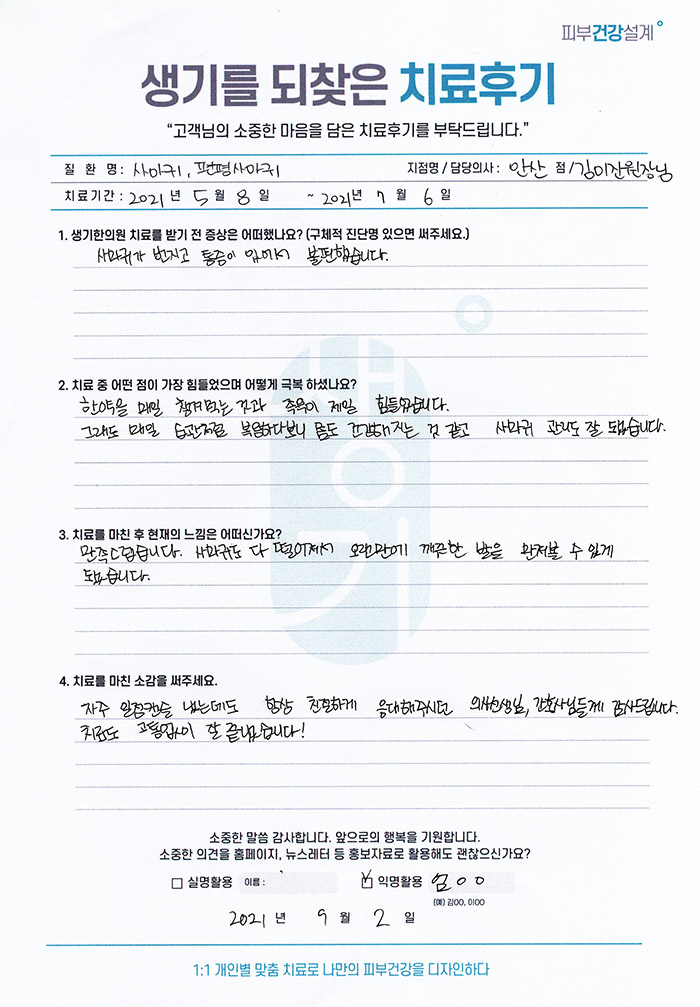 피부건강설계
생기를 되찾은 치료후기
“고객님의 소중한 마음을 담은 치료후기를 부탁드립니다.”
질 환 명 : 사마귀, 편평사마귀 지점명 / 담당의사 : 안산 점 / 김미진원장님
치료기간 : 2021 년 5 월 8 일 ~ 2021년 7 월 6 일
1. 생기한의원 치료를 받기 전 증상은 어떠했나요? (구체적 진단명 있으면 써주세요.)
사마귀가 번지고 통증이 있어서 불편했습니다.
2. 치료 중 어떤 점이 가장 힘들었으며 어떻게 극복 하셨나요?
한약을 매일 챙겨먹는것과 족욕이 제일 힘들었습니다.
그래도 매일 습관처럼 복용하다보니 몸도 건강해지는 것 같고 사마귀 관리도 잘 되었습니다.
3. 치료를 마친 후 현재의 느낌은 어떠신가요?
만족스럽습니다. 사마귀도 다 떨어져서 오랜만에 깨끗한 발을 만져볼 수 있게
되었습니다.
4. 치료를 마친 소감을 써주세요.
자주 일정캔슬 냈는데도 항상 친절하게 응대해주시던 의사선생님, 간호사님들께 감사드립니다.
치료도 고통없이 잘 끝났습니다!
생기
소중한 말씀 감사합니다. 앞으로의 행복을 기원합니다.
소중한 의견을 홈페이지, 뉴스레터 등 홍보자료로 활용해도 괜찮으신가요?
실명활용 이름 : 익명활용 엄○○
(예) 김00, 이00
2021 년 9 월 2 일
1:1 개인별 맞춤 치료로 나만의 피부건강을 디자인하다